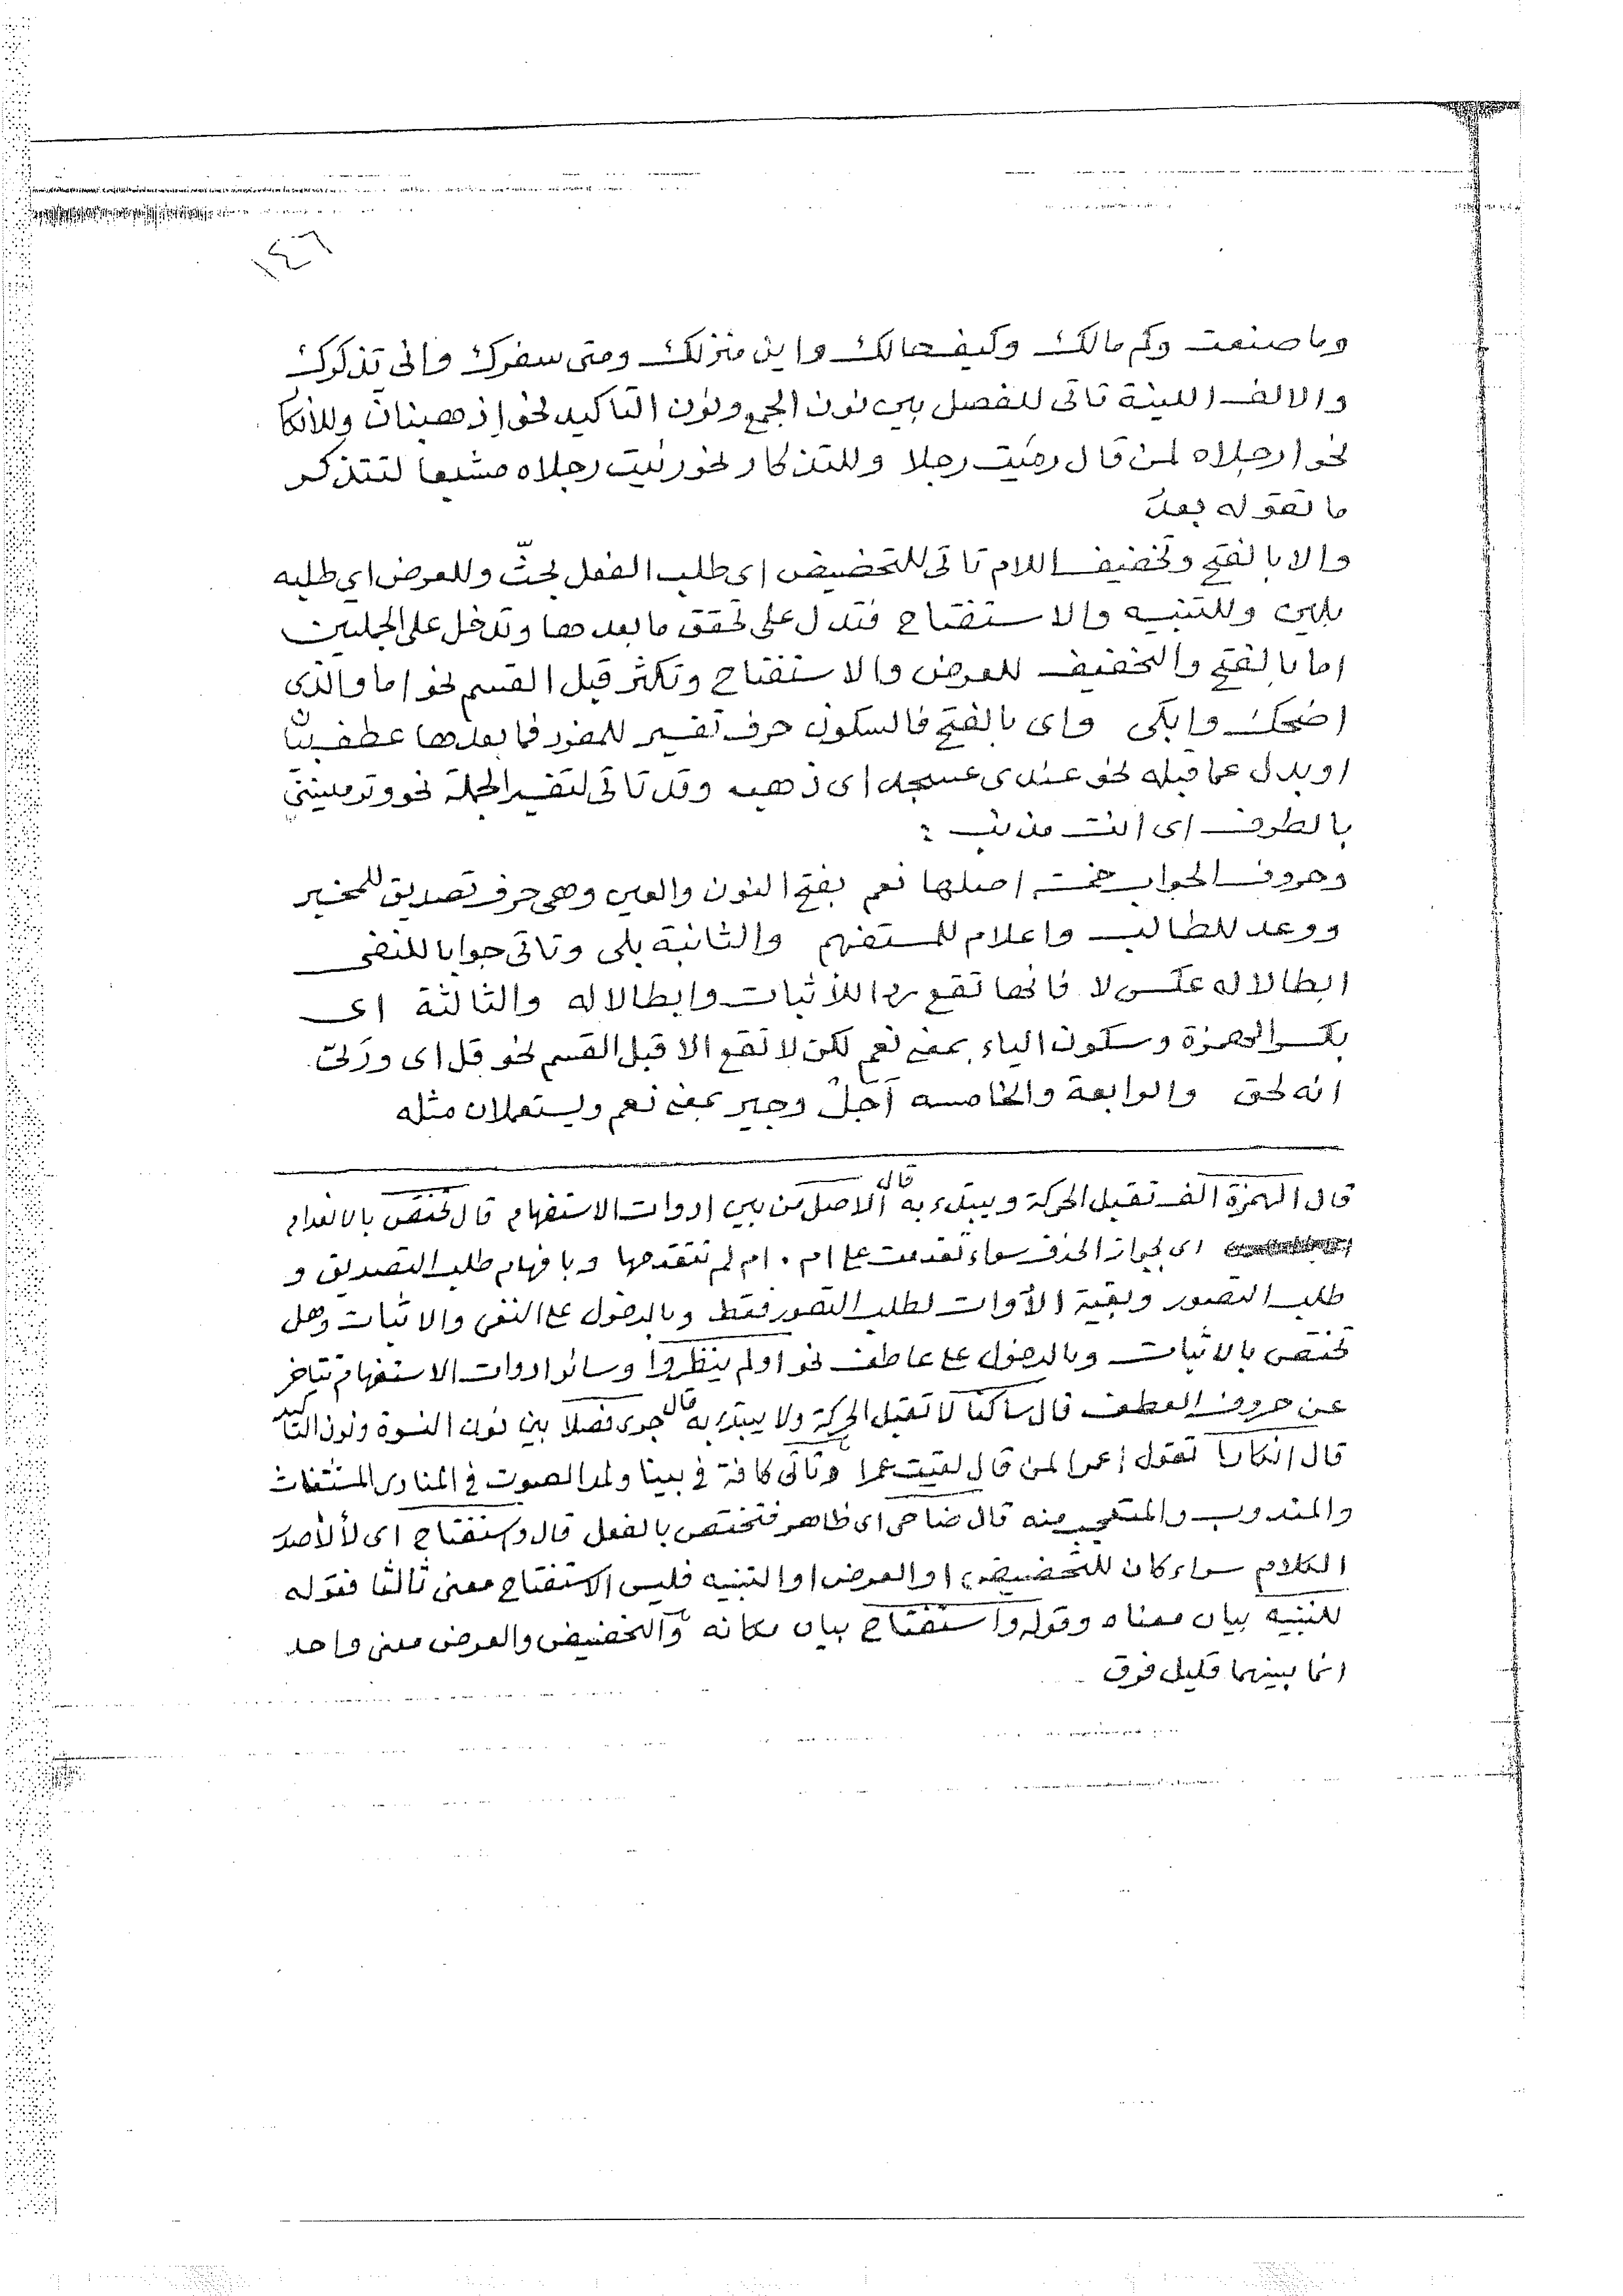 ١٤٦
وما صنعت وكم مالك وكيف حالك واين منزلك ومتى سفرك وانى تذكرك
والالف اللينة تاتى للفصل بين نون الجمع ونون التاكيد نحو اذهبنان وللانكا
نحو ارجلاه لمن قال رئيت رجلا وللتذكار نحو رئيت رجلاه مشبعا لتتذكر
ما تقوله بعد
والا بالفتح وتخفيف اللام تاتى للتحضيض اى طلب الفعل بحثّ وللعرض اي طلبه
بلين وللتنبيه والاستفتاح فتدل على تحقق ما بعدها وتدخل على الجملتين
اما بالفتح والتخفيف للعرض والاستفتاح وتكثر قبل القسم نحو اما والذى
اضحك وابكى واى بالفتح فالسكون حرف تفسير للمفرد فما بعدها عطف بيان
او بدل عما قبله نحو عندى عسجد اى ذهب وقد تاتى لتفسير الجملة نحو وترمينني
بالطرف اى انت مذنب :
وحروف الجواب خمسة اصلها نعم بفتح النون والعين وهى حرف تصديق للمخبر
ووعد للطالب واعلام للمستفهم والثانية بلى وتاتى جوابا للنفى
ابطالا له عكس لا فانها تقع ردا للأثبات وابطالا له والثالثة اى
بكسر الهمزة وسكون الياء بمعنى نعم لكن لا تقع الا قبل القسم نحو قل اى وربى
انه لحق والرابعة والخامسه أجل وجير بمعنى نعم ويستعملان مثله
قال الهمزة الف تقبل الحركة ويبتدء به قال الاصل من بين ادوات الاستفهام قال تختص بالانعدام
اى بجواز الحذف سواء تقدمت على ام . ام لم تتقدمها وبافهام طلب التصديق و
طلب التصور وبقية الأدوات لطلب التصور فقط وبالدخول على النفى والاثبات وهل
تختص بالاثبات وبالدخول على عاطف نحو اولم ينظروا وسائر ادوات الاستفهام تتاخر
عن حروف العطف قال ساكنا لا تقبل الحركة ولا يبتدء به قال جرى فصلا بين نون النسوة ونون التاكيد
قال انكارا تقول أعمرا لمن قال لقيت عمرا وتاتى كافة في بينا ولمد الصوت في المنادى المستغاث
والمندوب والمتعجب منه قال ضاحى اى ظاهر فتختص بالفعل قال واستفتاح اى لألا صدر
الكلام سواء كان للتحضيض او العرض او التنبيه فليس الاستفتاح معنى ثالثا فقوله
للتنبيه بيان معناه وقوله واستفتاح بيان مكانه والتحضيض والعرض معنى واحد
انما بينهما قليل فرق